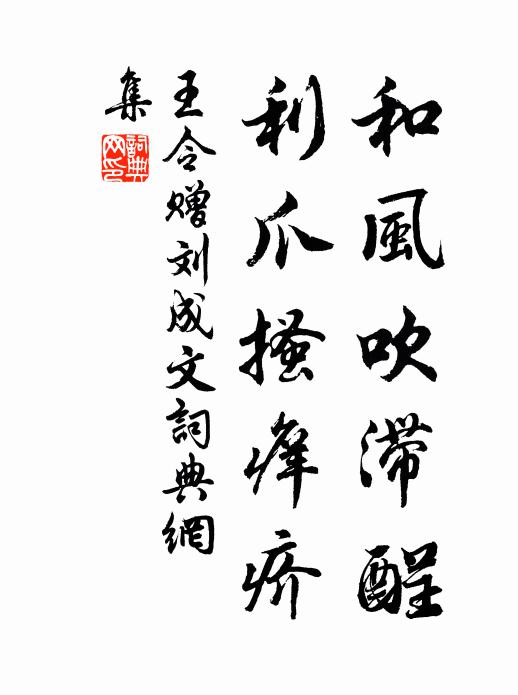 和風吹滞酲
利爪搔痒疥
王令赠刘成文詞典網
集
詞典
网印